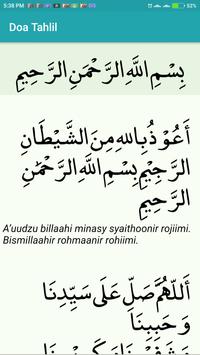 5:38 PM
52%
Doa Tahlil
بِسْمِ اللَّهِ الرَّحْمَنِ الرَّحِيْمِ
أَعُوْذُ بِاللهِ مِنَ الشَّيْطَانِ
الرَّجِيْمِ بِسْمِ اللَّهِ الرَّحْمَنِ
الرَّحِيْمِ
A'uudzu billaahi minasy syaithoonir rojiimi.
Bismillaahir rohmaanir rohiimi.
أَللَّهُمَّ صَلِّ عَلَى سَيِّدِنَا
وَحَبِيْبِنَا